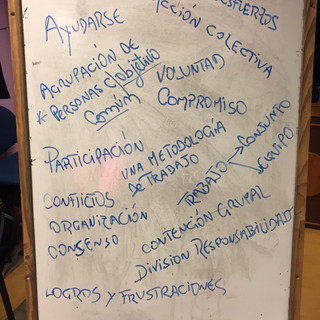 AYUDARSE
ACCIÓN COLECTIVA
AGRUPACIÓN DE
* PERSONAS C/OBJETIVO
COMÚN
VOLUNTAD
COMPROMISO
PARTICIPACIÓN
UNA METODOLOGÍA
DE TRABAJO
TRABAJO
CONJUNTO
EQUIPO
CONFLICTOS
ORGANIZACIÓN
CONSENSO
CONTENCIÓN GRUPAL
DIVISION RESPONSABILIDADES
LOGROS Y FRUSTRACIONES